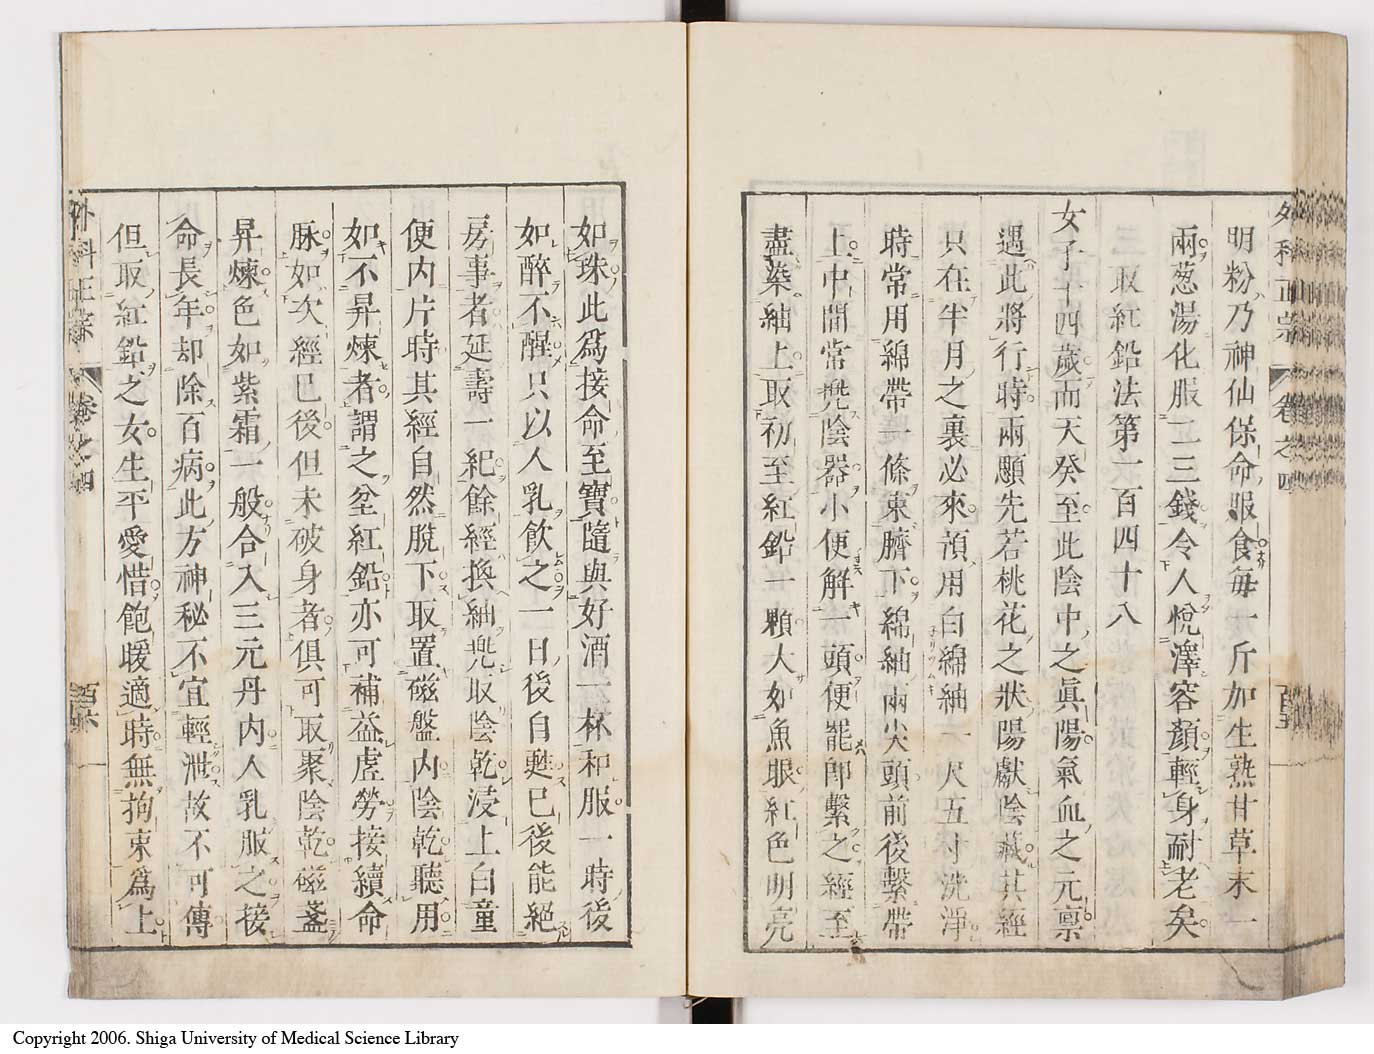 外科正宗 卷之四
明粉乃神仙保命服食每一斤加生熟甘草末一
兩葱湯化服二三錢令人悅澤容顏輕身耐老矣
三取紅鉛法第一百四十八
女子十四歲而天癸至此陰中之眞陽氣血之元禀
遇此將行時兩顋先若桃花之狀陽獻陰藏其經
只在半月之裏必來預用白綿紬一尺五寸洗淨
時常用綿帶一條束臍下綿紬兩尖頭前後繫帶
上中間常兠陰器小便解一頭便罷即繫之經至
盡染紬上取初至紅鉛一顆大如魚眼紅色明亮
如珠此爲接命至寶隨與好酒一杯和服一時後
如醉不醒只以人乳飲之一日後自甦已後能絕
房事者延壽一紀餘經換紬兠取陰乾浸上白童
便內片時其經自然脫下取置磁盤内陰乾聽用
如不昇煉者謂之坌紅鉛亦可補益虛勞接續命
脉如次經已後但未破身者俱可取聚陰乾磁盞
昇煉色如紫霜一般合入三元丹内人乳服之接
命長年却除百病此方神秘不宜輕泄故不可傳
但取紅鉛之女生平愛惜飽暖適時無拘束爲上
外科正宗 卷之四
Copyright 2006. Shiga University of Medical Science Library